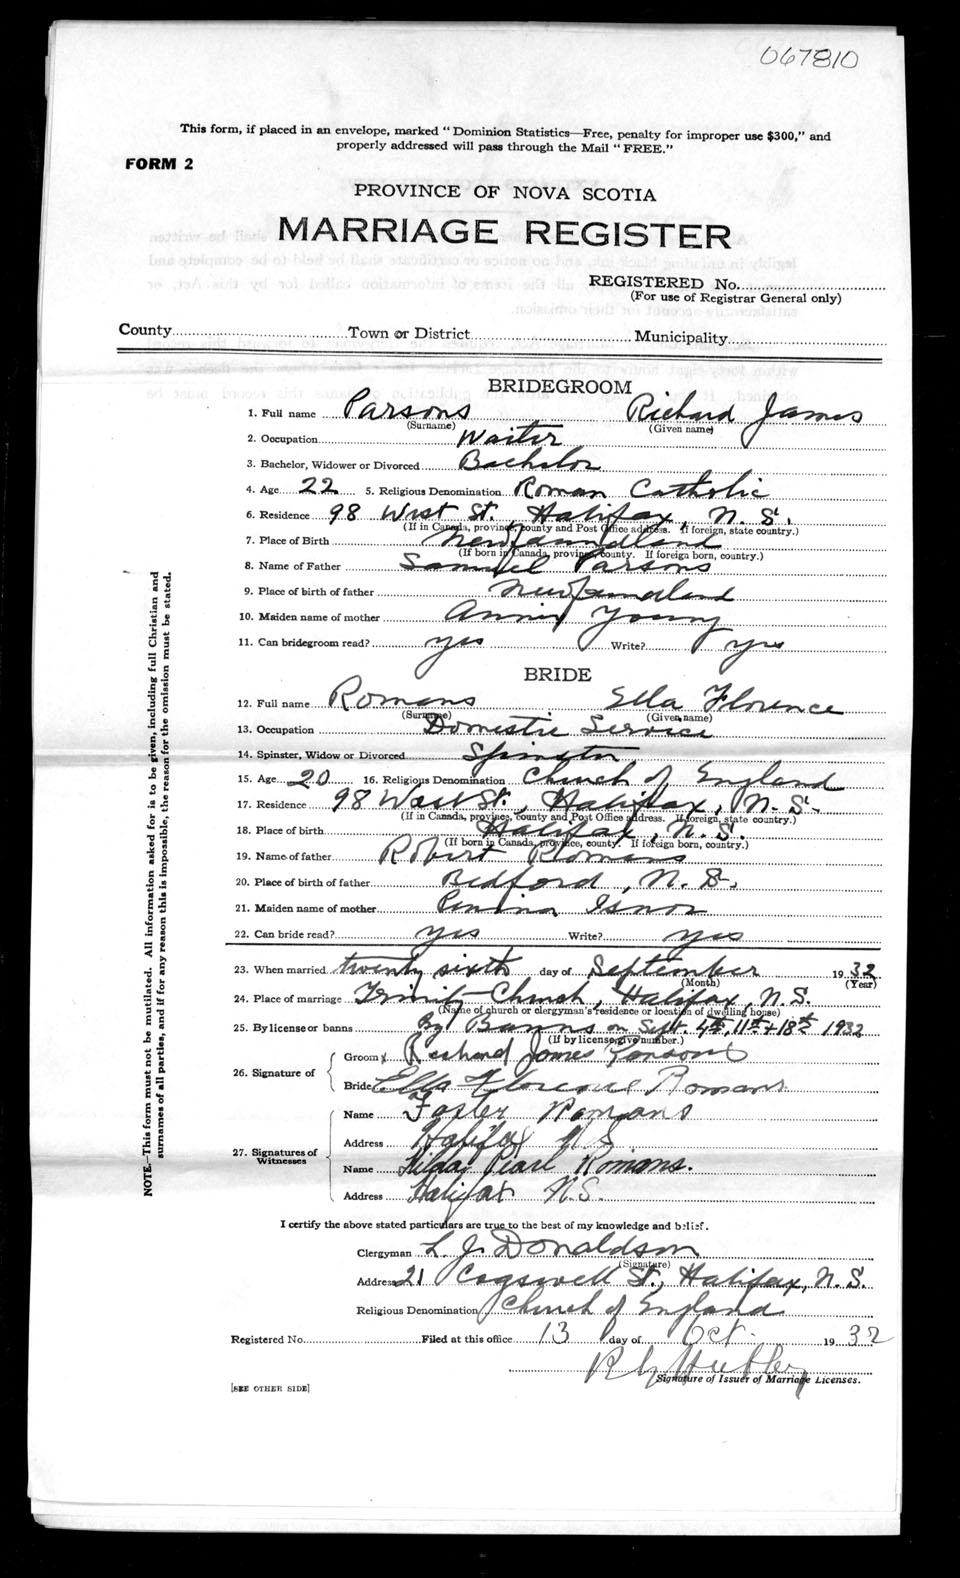 067810
This form, if placed in an envelope, marked " Dominion Statistics—Free, penalty for improper use $300," and
properly addressed will pass through the Mail " FREE."
FORM 2
PROVINCE OF NOVA SCOTIA
MARRIAGE REGISTER
REGISTERED No.
(For use of Registrar General only)
County Town or District Municipality
BRIDEGROOM
1. Full name Parsons Richard James
(Surname) (Given name)
2. Occupation Waiter
3. Bachelor, Widower or Divorced Bachelor
4. Age 22 5. Religious Denomination Roman Catholic
6. Residence 98 West St. Halifax, N.S.
(If in Canada, province, county and Post Office address. If foreign, state country.)
7. Place of Birth Newfoundland
(If born in Canada, province, county. If foreign born, country.)
8. Name of Father Samuel Parsons
9. Place of birth of father Newfoundland
10. Maiden name of mother Annie Young
11. Can bridegroom read? yes Write? yes
BRIDE
12. Full name Romans Ella Florence
(Surname) (Given name)
13. Occupation Domestic Service
14. Spinster, Widow or Divorced Spinster
15. Age 20 16. Religious Denomination Church of England
17. Residence 98 West St., Halifax, N.S.
(If in Canada, province, county and Post Office address. If foreign, state country.)
18. Place of birth Halifax, N.S.
(If born in Canada, province, county. If foreign born, country.)
19. Name of father Robert Romans
20. Place of birth of father Bedford, N.S.
21. Maiden name of mother Penina Isnor
22. Can bride read? yes Write? yes
23. When married twenty sixth day of September 1932
(Month) (Year)
24. Place of marriage Trinity Church, Halifax, N.S.
(Name of church or clergyman's residence or location of dwelling house)
25. By license or banns By Banns on Sept. 4th, 11th + 18th 1932
(If by license, give number.)
Groom x Richard James Parsons
26. Signature of
Bride Ella Florence Romans
Name Foster Romans
Address Halifax N S
27. Signatures of Witnesses
Name Hilda Pearl Romans.
Address Halifax N.S.
I certify the above stated particulars are true to the best of my knowledge and belief.
Clergyman L. J. Donaldson
(Signature)
Address 21 Cogswell St., Halifax, N.S.
Religious Denomination Church of England
Registered No. Filed at this office 13 day of Oct. 1932
Signature of Issuer of Marriage Licenses.
[SEE OTHER SIDE]
NOTE.—This form must not be mutilated. All information asked for is to be given, including full Christian and
surnames of all parties, and if for any reason this is impossible, the reason for the omission must be stated.